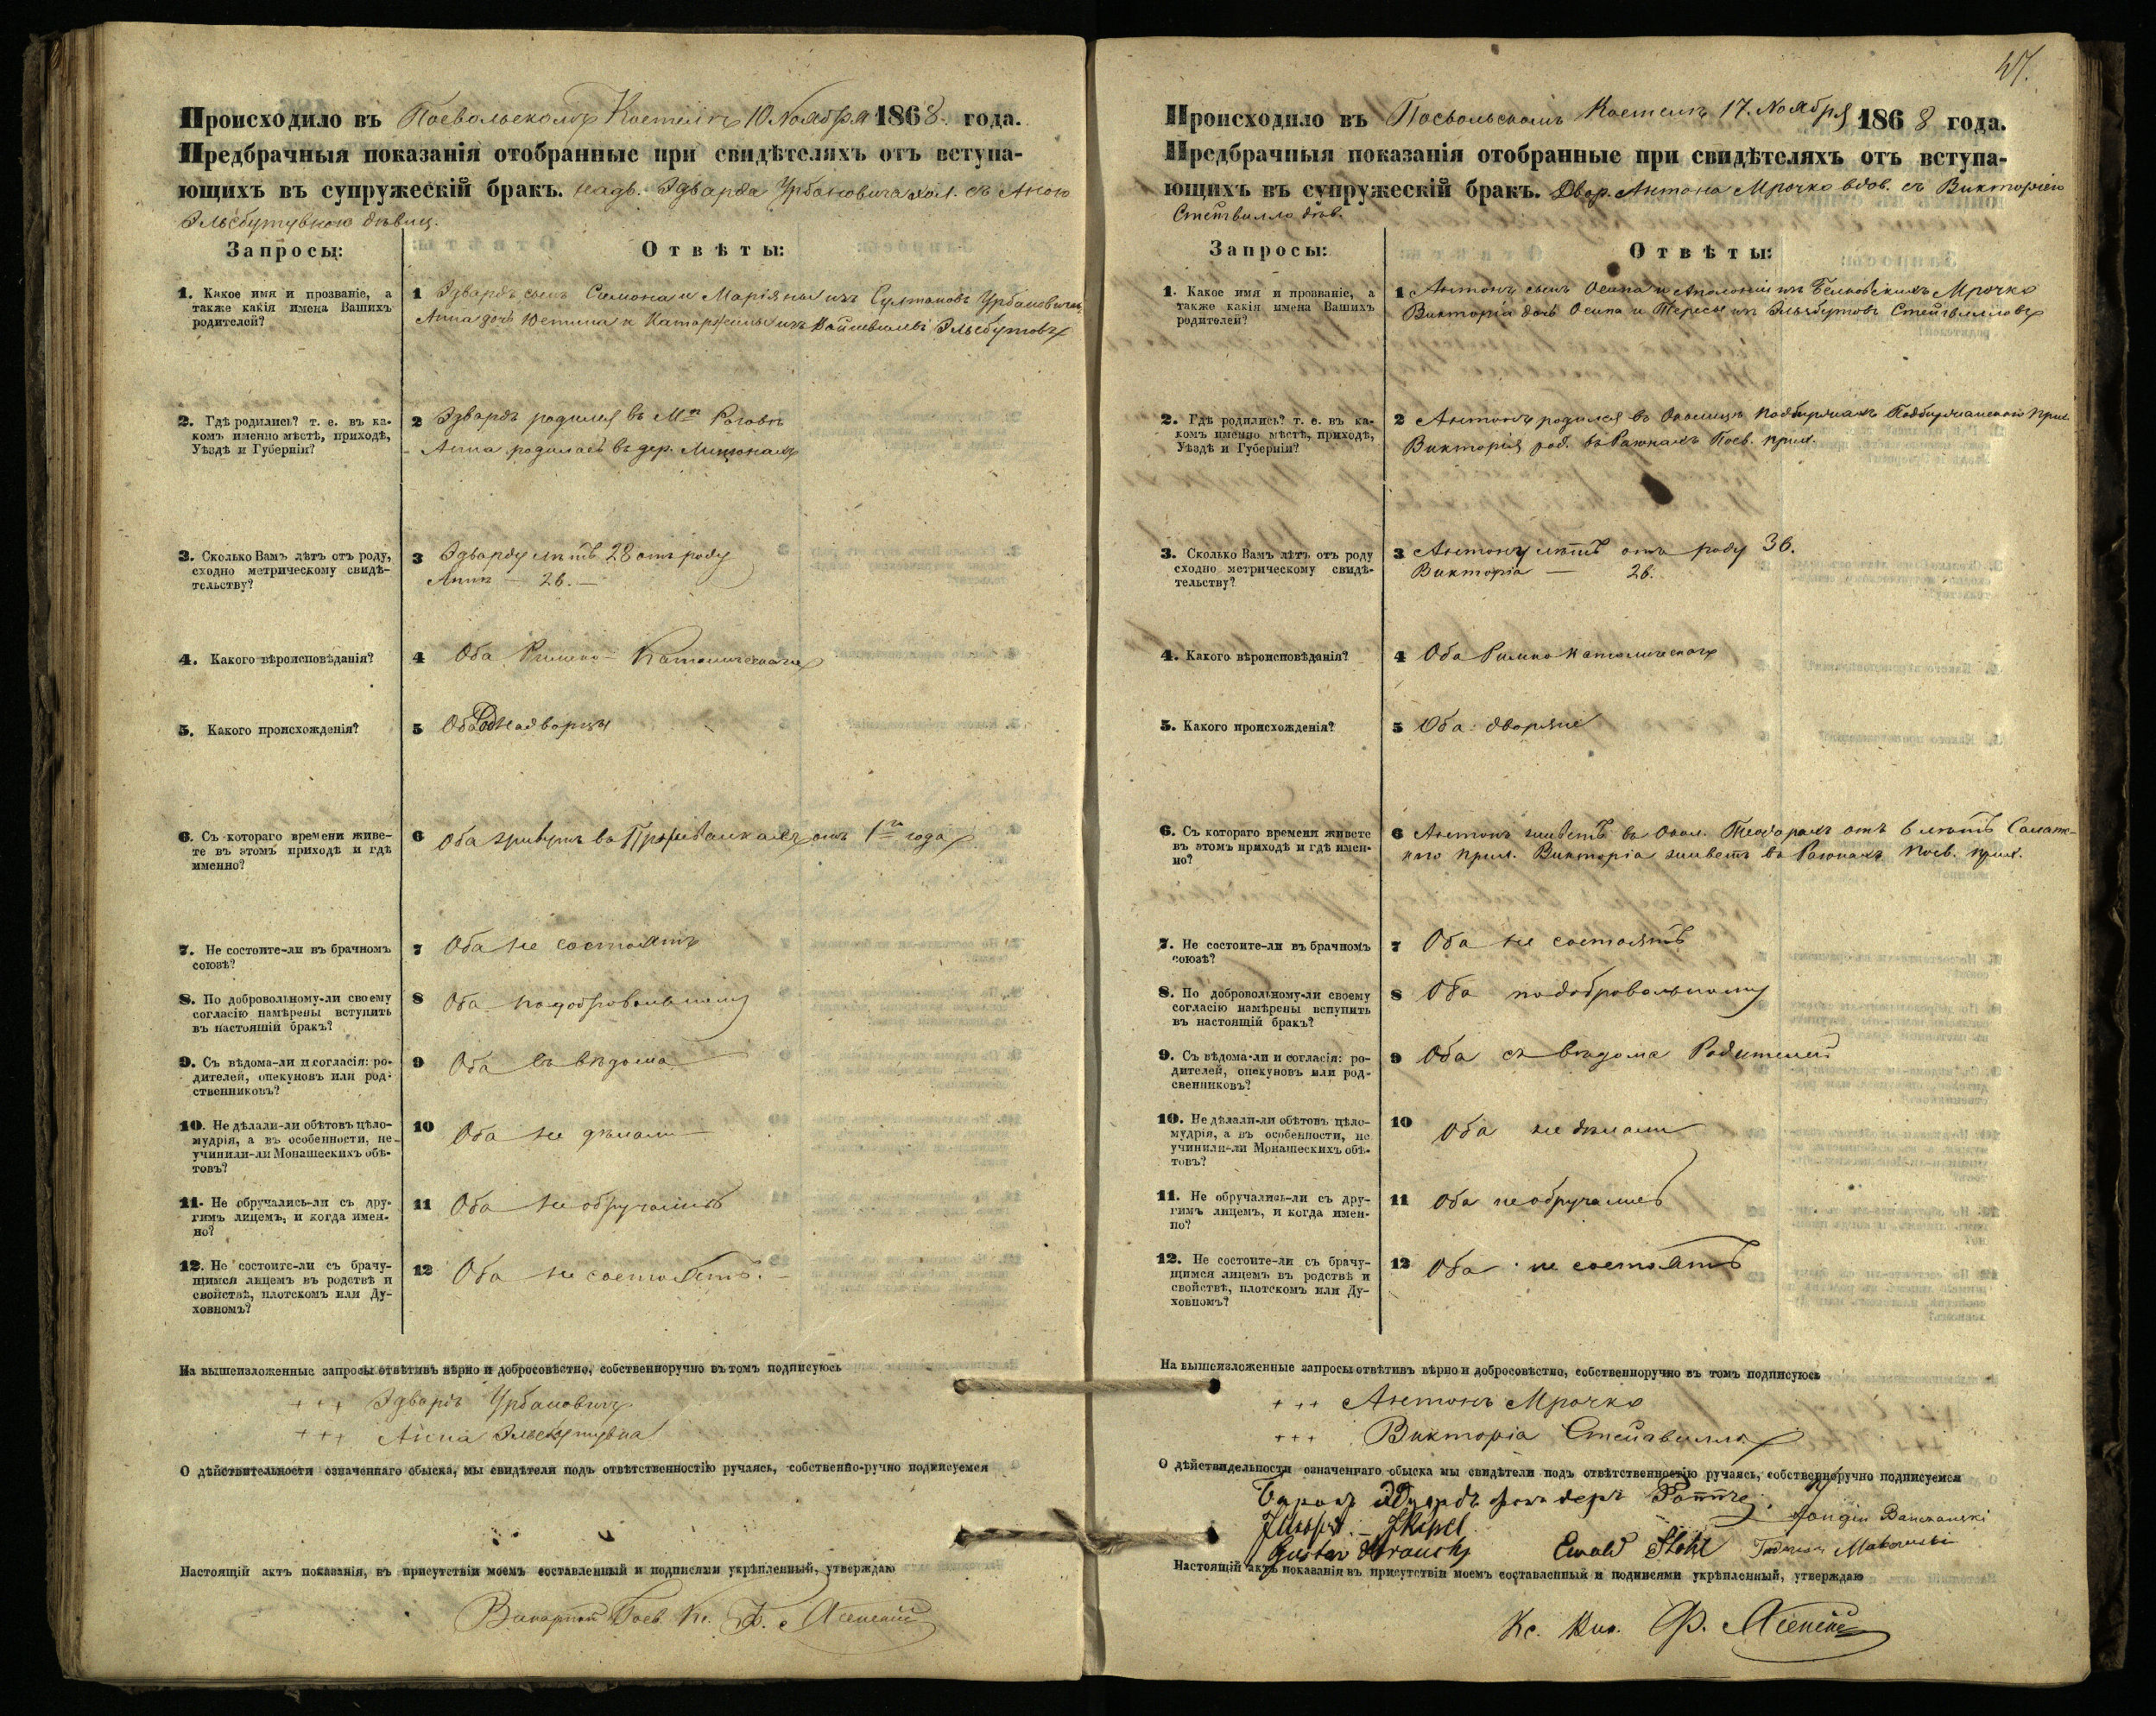 Происходило въ Посвольскомъ Костелѣ 10 Ноября 1868 года.
Предбрачныя показанія отобранные при свидѣтеляхъ отъ вступа-
ющихъ въ супружескій бракъ. надв. Эдварда Урбановича хол. съ Аною
Эльсбутувною дѣвиц.
Запросы: Отвѣты:
1. Какое имя и прозваніе, а
также какія имена Вашихъ
родителей?
1 Эдвардъ сынъ Симона и Маріяны изъ Султановъ Урбановичъ
Анна дочь Юстина и Катаржины изъ Эльсбутовъ
2. Гдѣ родились? т. е. въ ка-
комъ именно мѣстѣ, приходѣ,
Уѣздѣ и Губерніи?
2 Эдвардъ родился въ Мѣ Роговѣ
Анна родилась въ дер.
3. Сколько Вамъ лѣтъ отъ роду,
сходно метрическому свидѣ-
тельству?
3 Эдварду лѣтъ 28 отъ роду
Аннѣ — 26. —
4. Какого вѣроисповѣданія?
4 Оба Римско-Католическаго
5. Какого происхожденія?
5 Оба Однадворцы
6. Съ котораго времени живе-
те въ этомъ приходѣ и гдѣ
именно?
6 Оба живутъ въ отъ 1го года
7. Не состоите-ли въ брачномъ
союзѣ?
7 Оба не состоятъ
8. По добровольному-ли своему
согласію намѣрены вступить
въ настоящій бракъ?
8 Оба подобровольному
9. Съ вѣдома-ли и согласія: ро-
дителей, опекуновъ или род-
ственниковъ?
9 Оба съ вѣдома
10. Не дѣлали-ли обѣтовъ цѣло-
мудрія, а въ особенности, не
учинили-ли Монашескихъ обѣ-
товъ?
10 Оба не дѣлали
11. Не обручались-ли съ дру-
гимъ лицемъ, и когда имен-
но?
11 Оба не обручались
12. Не состоите-ли съ брачу-
щимся лицемъ въ родствѣ и
свойствѣ, плотскомъ или Ду-
ховномъ?
12 Оба не состоятъ. —
На вышеизложенные запросы отвѣтивъ вѣрно и добросовѣстно, собственноручно въ томъ подписуюсь
+++ Эдвардъ Урбановичъ
+++ Анна Эльсбутувна
О дѣйствительности означеннаго обыска, мы свидѣтели подъ отвѣтственностію ручаясь, собственно-ручно подписуемся
Настоящій актъ показанія, въ присутствіи моемъ составленный и подписями укрѣпленный, утверждаю
Викарный Посв. Кс. Ф.
47.
Происходило въ Посвольскомъ Костелѣ 17. Ноября 1868 года.
Предбрачныя показанія отобранные при свидѣтеляхъ отъ вступа-
ющихъ въ супружескій бракъ. Двор. Антона Мрочко вдов. съ Викторіею
Стейгвилло дѣв.
Запросы: Отвѣты:
1. Какое имя и прозваніе, а
также какія имена Вашихъ
родителей?
1 Антонъ сынъ Осипа и Аполоніи изъ Мрочко
Викторія дочь Осипа и Тересы изъ Эльзбутовъ Стейгвилловъ
2. Гдѣ родились? т. е. въ ка-
комъ именно мѣстѣ, приходѣ,
Уѣздѣ и Губерніи?
2 Антонъ родился въ Околицѣ Подбиржахъ Подбиржанскаго прих.
Викторія род. въ Раюнахъ Посв. прих.
3. Сколько Вамъ лѣтъ отъ роду
сходно метрическому свидѣ-
тельству?
3 Антону лѣтъ отъ роду 36.
Викторіа — 26.
4. Какого вѣроисповѣданія?
4 Оба Римнокатолическаго
5. Какого происхожденія?
5 Оба дворяне
6. Съ котораго времени живете
въ этомъ приходѣ и гдѣ имен-
но?
6 Антонъ живетъ въ Окол. Теодорахъ отъ 6 лѣтъ Салат-
каго прих. Викторіа живетъ въ Раюнахъ Посв. прих.
7. Не состоите-ли въ брачномъ
союзѣ?
7 Оба не состоятъ
8. По добровольному-ли своему
согласію намѣрены вспупить
въ настоящій бракъ?
8 Оба подобровольному
9. Съ вѣдома-ли и согласія: ро-
дителей, опекуновъ или род-
свенниковъ?
9 Оба съ вѣдома Родителей
10. Не дѣлали-ли обѣтовъ цѣло-
мудрія, а въ особенности, не
учинили-ли Монашескихъ обѣ-
товъ?
10 Оба не дѣлали
11. Не обручались-ли съ дру-
гимъ лицемъ, и когда имен-
но?
11 Оба необручались
12. Не состоите-ли съ брачу-
щимся лицемъ въ родствѣ и
свойствѣ, плотскомъ или Ду-
ховномъ?
12 Оба не состоятъ
На вышеизложенные запросы отвѣтивъ вѣрно и добросовѣстно, собственноручно въ томъ подписуюсь
+++ Антонъ Мрочко
+++ Викторіа Стейгвилло
О дѣйствидельности означеннаго обыска мы свидѣтели подъ отвѣтственностію ручаясь, собственноручно подписуемся
Баронъ Эдуардъ фонъ деръ Роппъ
Gustav Ewald Makowski
Настоящій актъ показанія въ присутствіи моемъ составленный и подписями укрѣпленный, утверждаю
Кс. Вик. Ф.